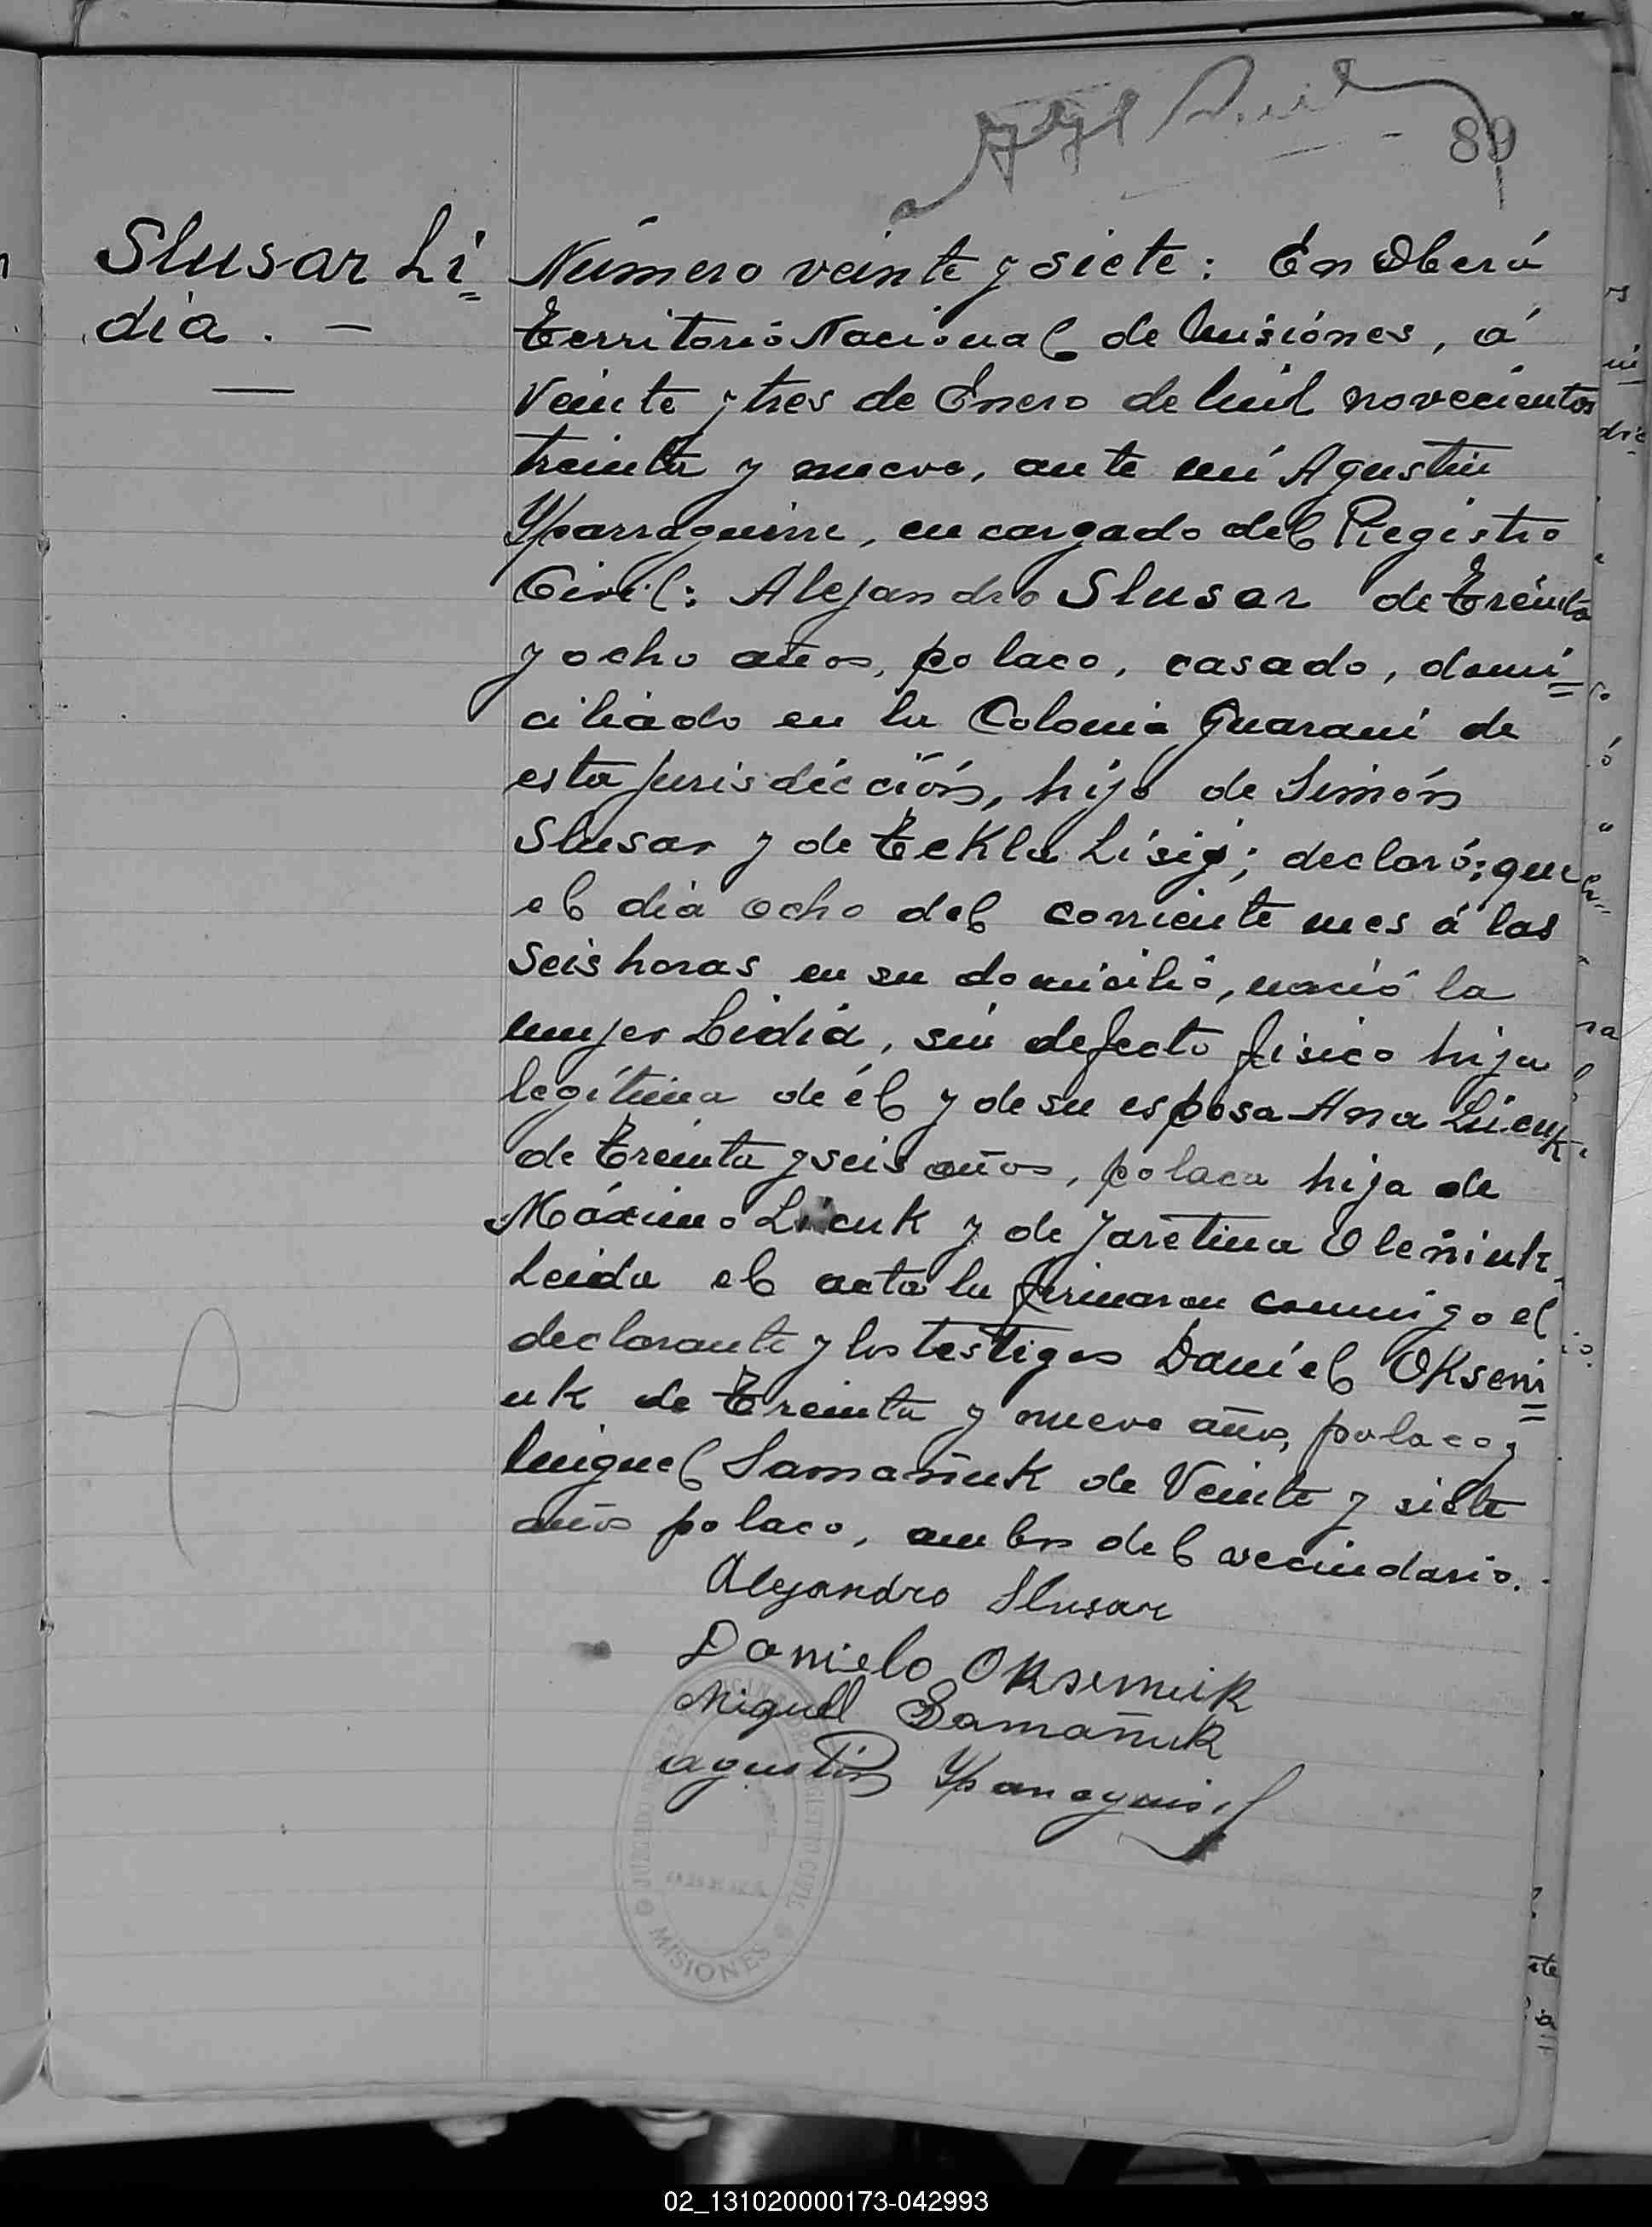 89
Slusar Li=
dia. —
Número veinte y siete: En Oberá
Territorio Nacional de Misiónes, á
veinte y tres de Enero de mil novecientos
treinta y nueve, ante mí Agustin
Yparraguirre, encargado del Registro
Civil: Alejandro Slusar de treinta
y ocho años, polaco, casado, domi=
ciliado en la Colonia Guaraní de
esta jurisdicción, hijo de Simón
Slusar y de Tekla Lisig; declaró; que
el día ocho del corriente mes á las
seis horas en su domicilió, nació la
mujer Lidia, sin defecto fisico hija
legítima de él y de su esposa Ana
de treinta y seis años, polaca hija de
Máximo y de Jaretina Oleñiuk.
Leida el acta la firmaron conmigo el
declarante y los testigos Daniel Okseni=
uk de treinta y nueve años, polaco y
Miguel Samañuk de Veinte y siete
años polaco, ambos del vecindario.
Alejandro Slusar
Danielo Okseniuk
Miguel Samañuk
Agustin Yparraguirre
REGISTRO CIVIL
MISIONES
02_131020000173-042993